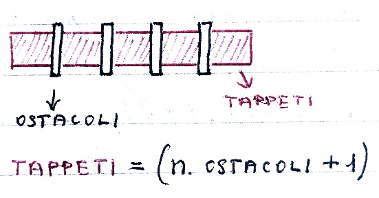 TAPPETI
OSTACOLI
TAPPETI = (n. OSTACOLI + 1)